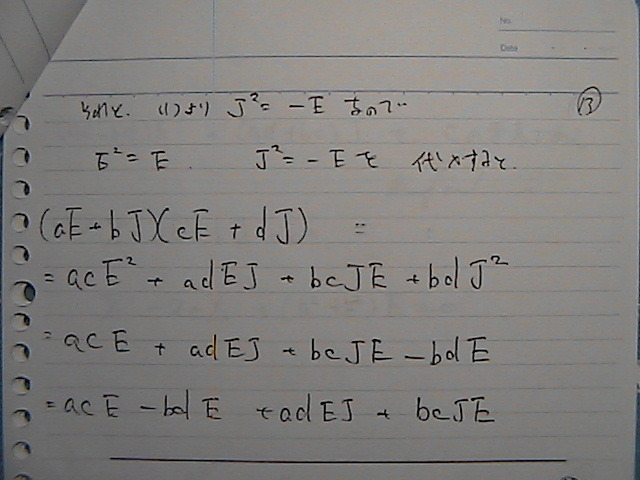 No.
Date
(1)より J²= -E なので… ⑬
E²= E. J²= -Eを 代入すると.
(aE+bJ)(cE + dJ) =
= acE² + adEJ + bcJE + bdJ²
= acE + adEJ + bcJE - bdE
= acE - bdE + adEJ + bcJE